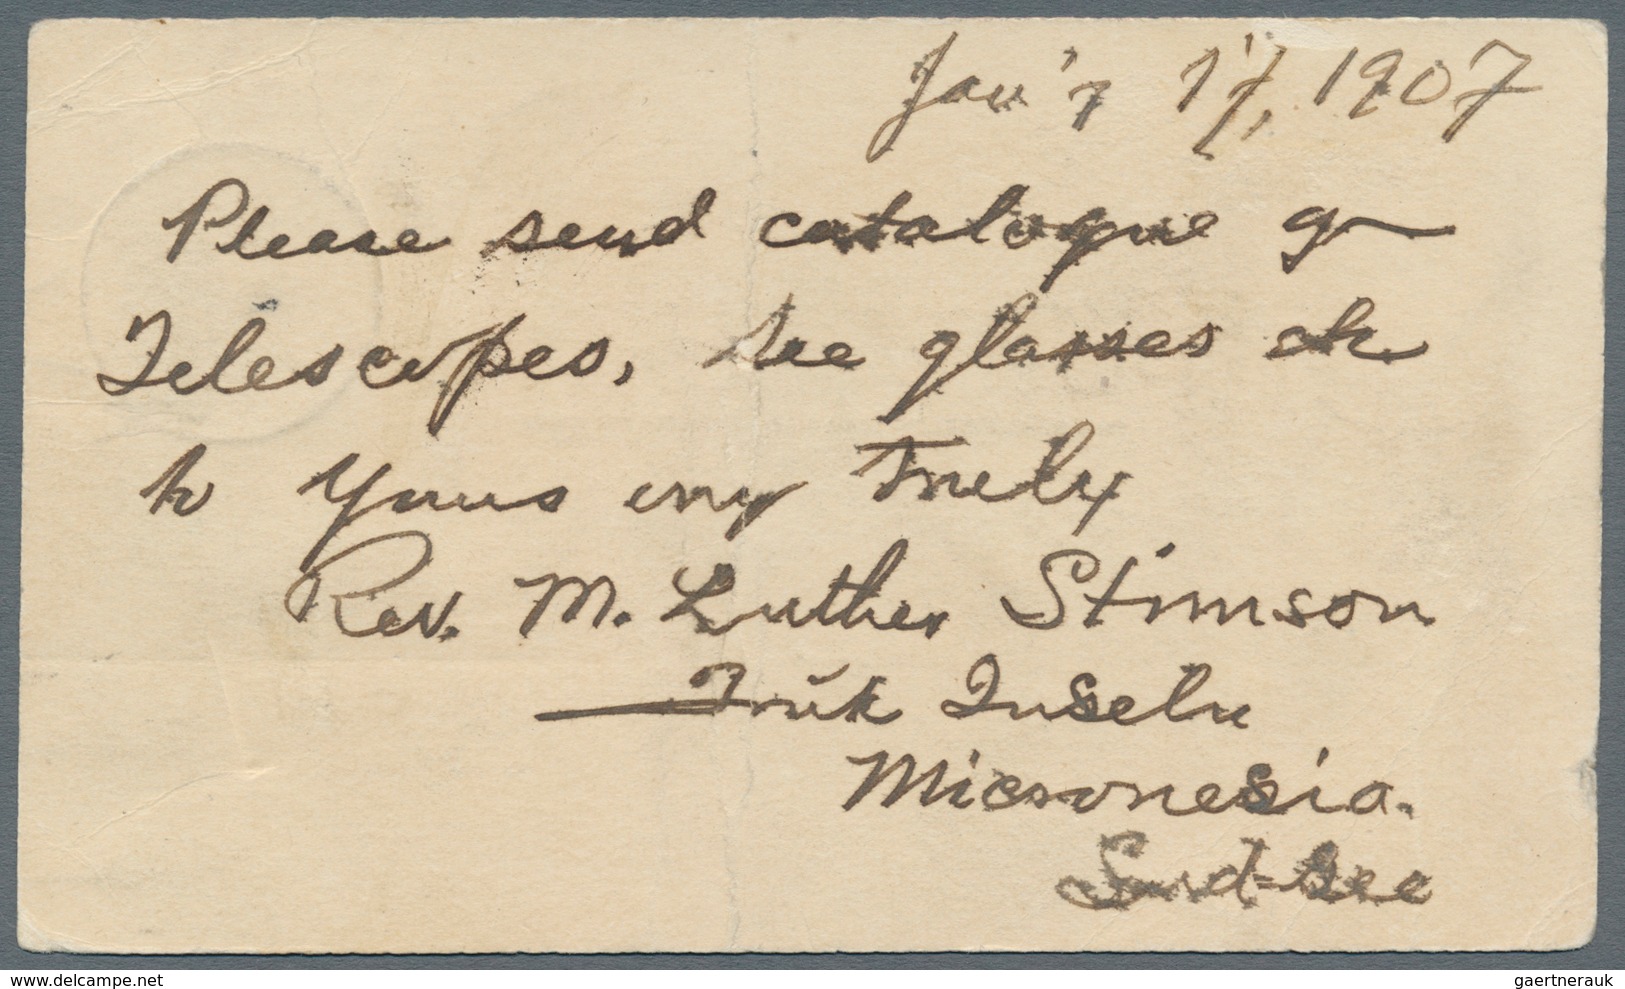 Jan'y 17, 1907
Please send catalogue of
Telescopes, see glasses etc
to Yours very truly
Rev. M. Luther Stimson
Truk Inseln
Micronesia.
Sud-See
gaertnerauk@delcampe.net